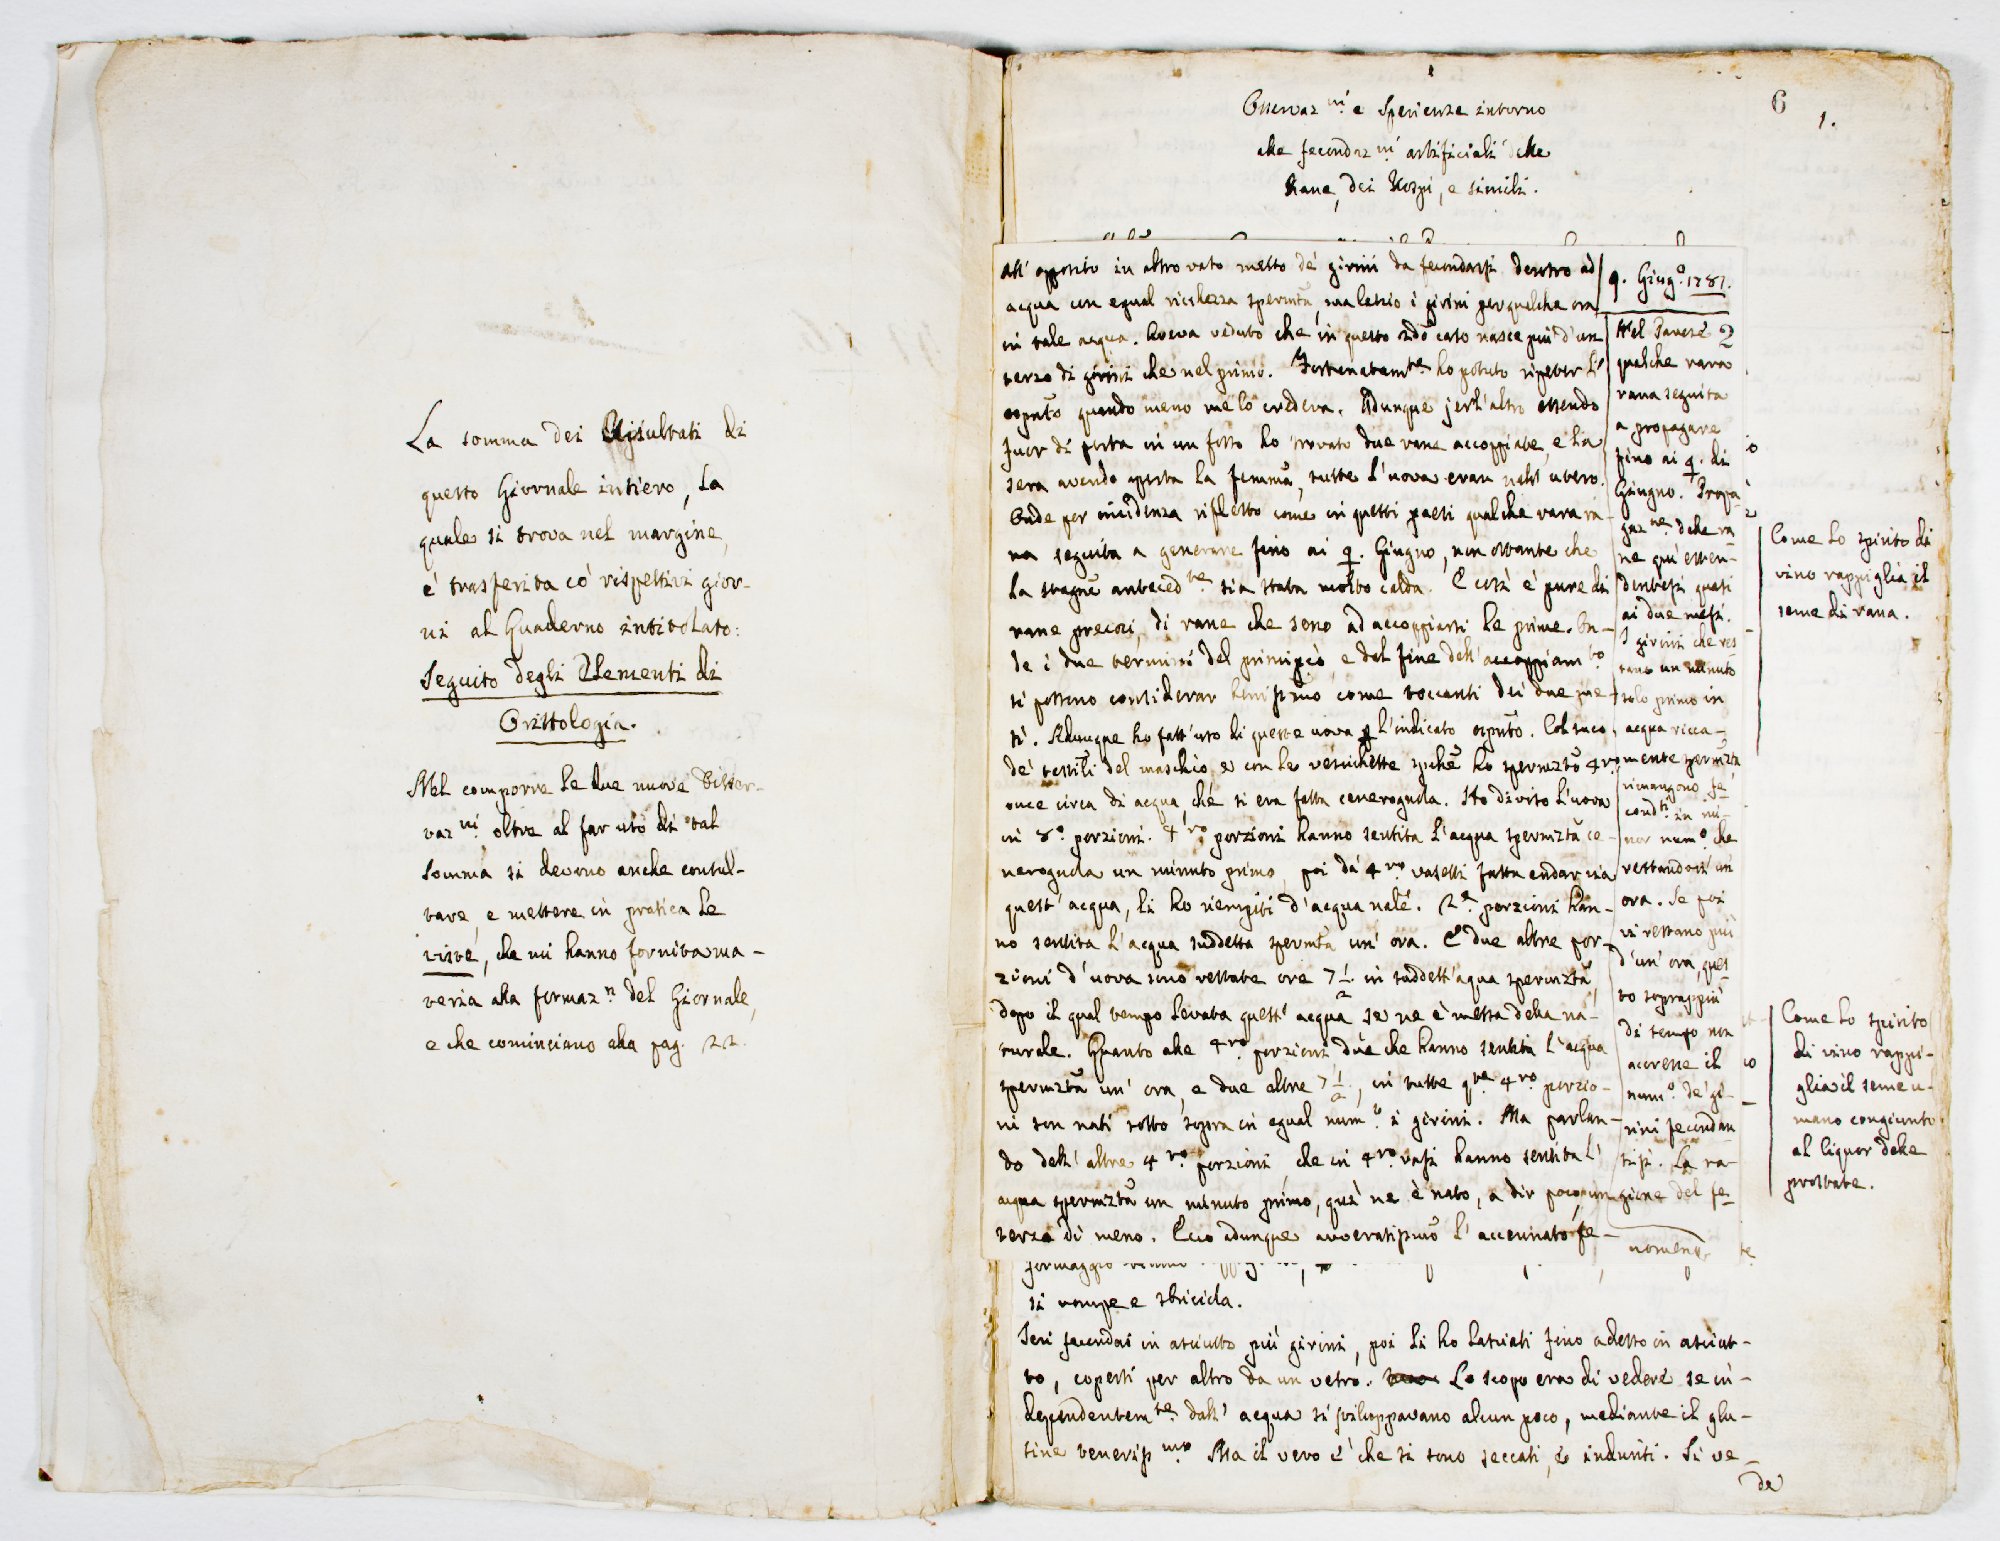 La somma dei Risultati di
questo Giornale intiero, la
quale si trova nel margine,
è trasferita co' rispettivi gior-
ni al Quaderno intitolato:
Seguito degli Elementi di
Orittologia.
Nel comporre le due nuove Disser-
taz.ni oltre al far uso di tal
somma si devono anche consul-
tare, e mettere in pratica le
viste, che mi hanno fornita ma-
teria alla formaz.n del Giornale,
e che cominciano alla pag. 22.
6
1.
Osservaz.ni e Sperienze intorno
alle fecondaz.ni artificiali delle
Rane, dei Rospi, e simili.
All' opposito in altro vaso metto de' girini da fecondarsi dentro ad
acqua con egual ricchezza spermtã, ma lascio i girini per qualche ora
in tale acqua. Aveva veduto che in questo 2dõ caso nasce più d'un
terzo di girini che nel primo. Fortunatam.te ho potuto ripeter l'
esp.to quando meno me lo credeva. Adunque jerl'altro essendo
fuor di porta in un fosso ho trovato due rane accoppiate, e la
sera avendo aperta la femmã, tutte l'uova eran nell' utero.
Onde per incidenza rifletto come in questi paesi qualche rara ra-
na seguita a generare fino ai 9. Giugno, non ostante che
la stagnẽ anteced.te sia stata molto calda. E così è pure di
rane precoci, di rane che sono ad accoppiarsi le prime. On-
de i due termini del principio, e del fine dell' accoppiam.to
si possono considerar benissmo come toccanti dei due me-
si. Adunque ho fatt'uso di queste uova p l'indicato esp.to. Col suco
de' testili del maschio, e con le vescichette spchẽ ho spermztõ 4.ro
once circa di acqua, che si era fatta cenerognola. Ho diviso l'uova
in 8.º porzioni. 4.ro porzioni hanno sentita l'acqua spermztã ce-
nerognola un minuto primo, poi da 4.ro vaselli fatta andar via
quest' acqua, li ho riempiti d'acqua nalẽ. 2.e porzioni han-
no sentita l'acqua suddetta spermtã un' ora. E due altre por-
zioni d'uova sono restate ore 7 1/2 in suddett'aqua spermztã,
dopo il qual tempo levata quest' acqua se ne è messa della na-
turale. Quanto alle 4.ro porzioni due che hanno sentita l'acqua
spermztã un' ora, e due altre 7 1/2, in tutte q.te 4.ro porzio-
ni son nati sotto sopra in egual num.º i girini. Ma parlan-
do dell' altre 4.ro porzioni che in 4.ro vasi hanno sentita l'
acqua spermztã un minuto primo, qui ne è nato, a dir poco, un
terzo di meno. Ecco adunque avveratissmo l'accennato fe-
nomeno.
9. Giug.º 1781.
Nel Pavese 2
qualche rara
rana seguita
a propagare
fino ai 9. di
Giugno. Propa-
gaz.ne delle ra-
ne qui esten-
dentesi quasi
ai due mesi.
I girini che res
tano un minuto
solo primo in
acqua ricca-
mente spermztã
rimangono fe
cond.ti in mi-
nor num.º che
restandovi un
ora. Se poi
vi restano più
d'un' ora, ques
to soprappiù
di tempo non
accresce il
num.º de' gi-
rini fecondan
tisi. La ra-
gione del fe-
Come lo spirito di
vino rappiglia il
seme di rana.
Come lo spirito
di vino rappi-
glia il seme u-
mano congiunto
al liquor delle
prostate.
formaggio
si rompe e sbriciola.
Ieri fecondai in asciutto più girini, poi li ho lasciati fino adesso in asciut-
to, coperti per altro da un vetro. Lo scopo era di vedere se in-
dependentem.te dall' acqua si sviluppavano alcun poco, mediante il glu-
tine tenerissmo. Ma il vero è che si sono seccati, e induriti. Si ve-
de